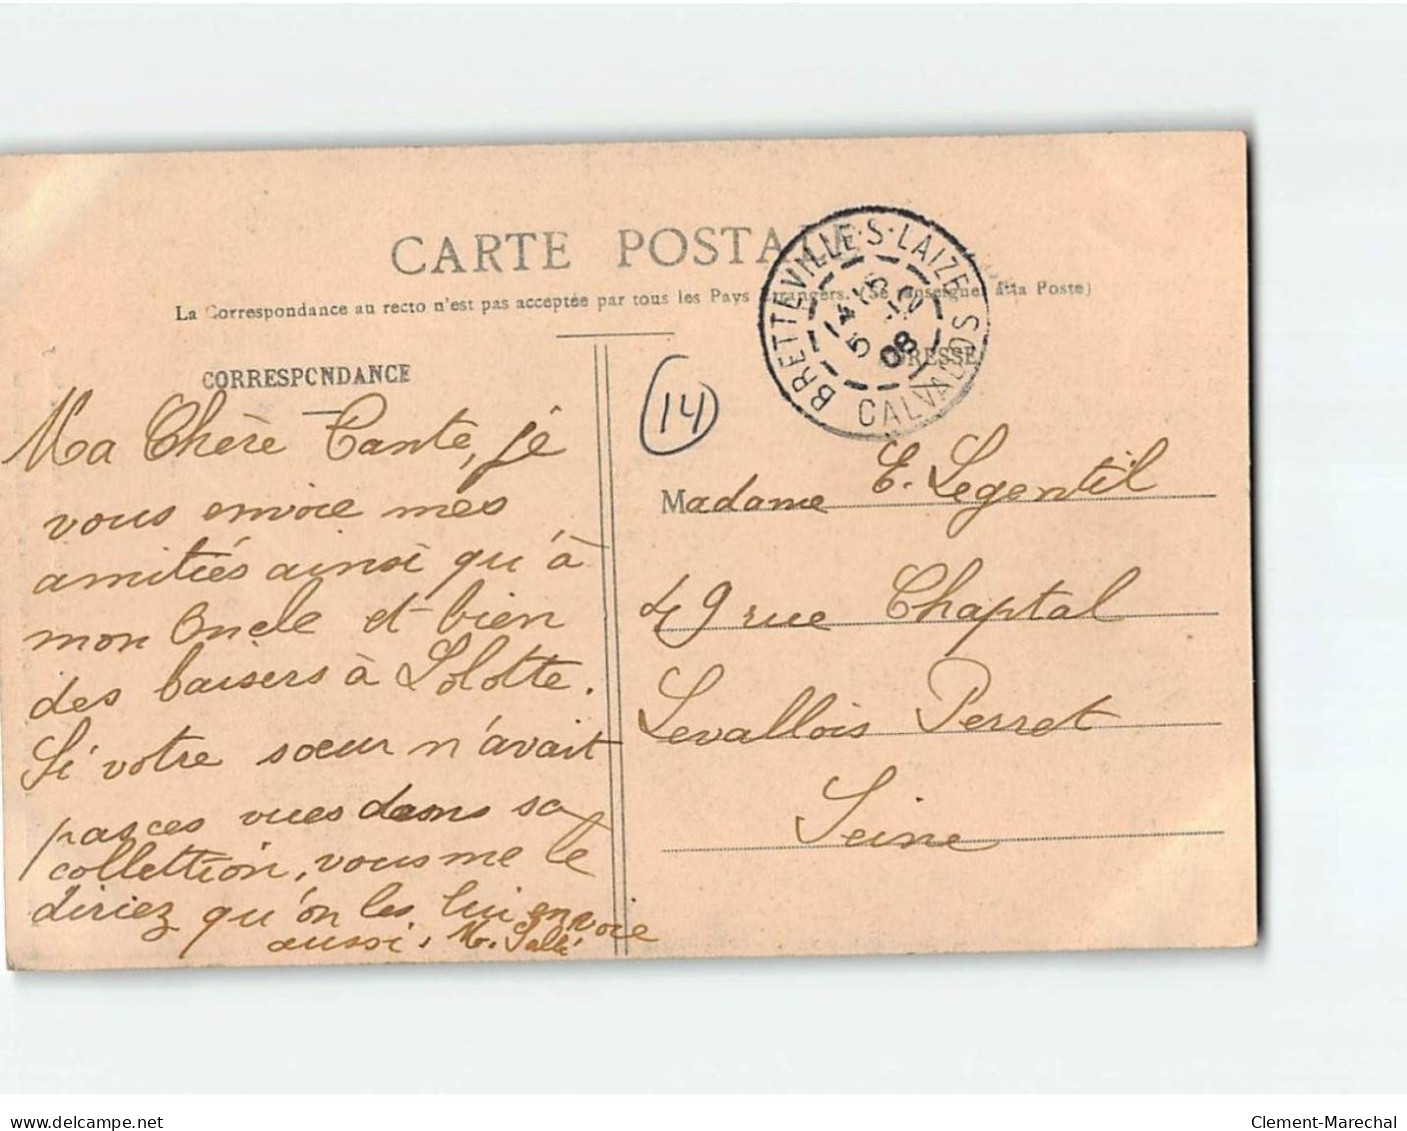 CARTE POSTALE
La Correspondance au recto n'est pas acceptée par tous les Pays Étrangers. (Se renseigner à la Poste)
CORRESPONDANCE
ADRESSE
BRETTEVILLE-S-LAIZE
5 -12
08
CALVADOS
14
Ma Chère Tante, je
vous envoie mes
amitiés ainsi qu'à
mon Oncle et bien
des baisers à Lolotte.
Si votre sœur n'avait
pas ces vues dans sa
collettion, vous me le
diriez qu'on les lui envoie
aussi. M. Sallé
Madame E. Legentil
49 rue Chaptal
Levallois Perret
Seine
delcampe.net
Clement-Marechal